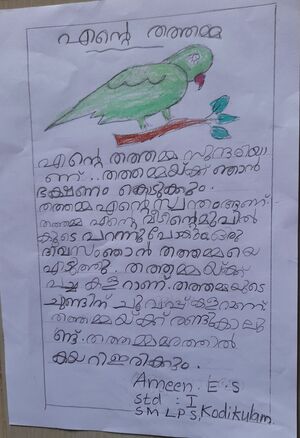 എന്റെ തത്തമ്മ
എന്റെ തത്തമ്മ സുന്ദരിയാ
ണ്. തത്തമ്മയ്ക്ക് ഞാൻ
ഭക്ഷണം കൊടുക്കും.
തത്തമ്മ എന്റെ സ്വന്തം ആണ്.
തത്തമ്മ എന്റെ വീടിന്റെ മുമ്പിൽ
കൂടെ പറന്നു പോകും ഒരു
ദിവസം ഞാൻ തത്തമ്മയെ
എടുത്തു. തത്തമ്മയ്ക്ക്
പച്ച കളറാണ്. തത്തമ്മയുടെ
ചുണ്ടിന് ചുവപ്പ് കളറാണ്.
തത്തമ്മയ്ക്ക് രണ്ടു കാലു
ണ്ട്. തത്തമ്മ മരത്തിൽ
കയറി ഇരിക്കും.
Ameen. E. S
std : I
S M L P S, Kodikulam